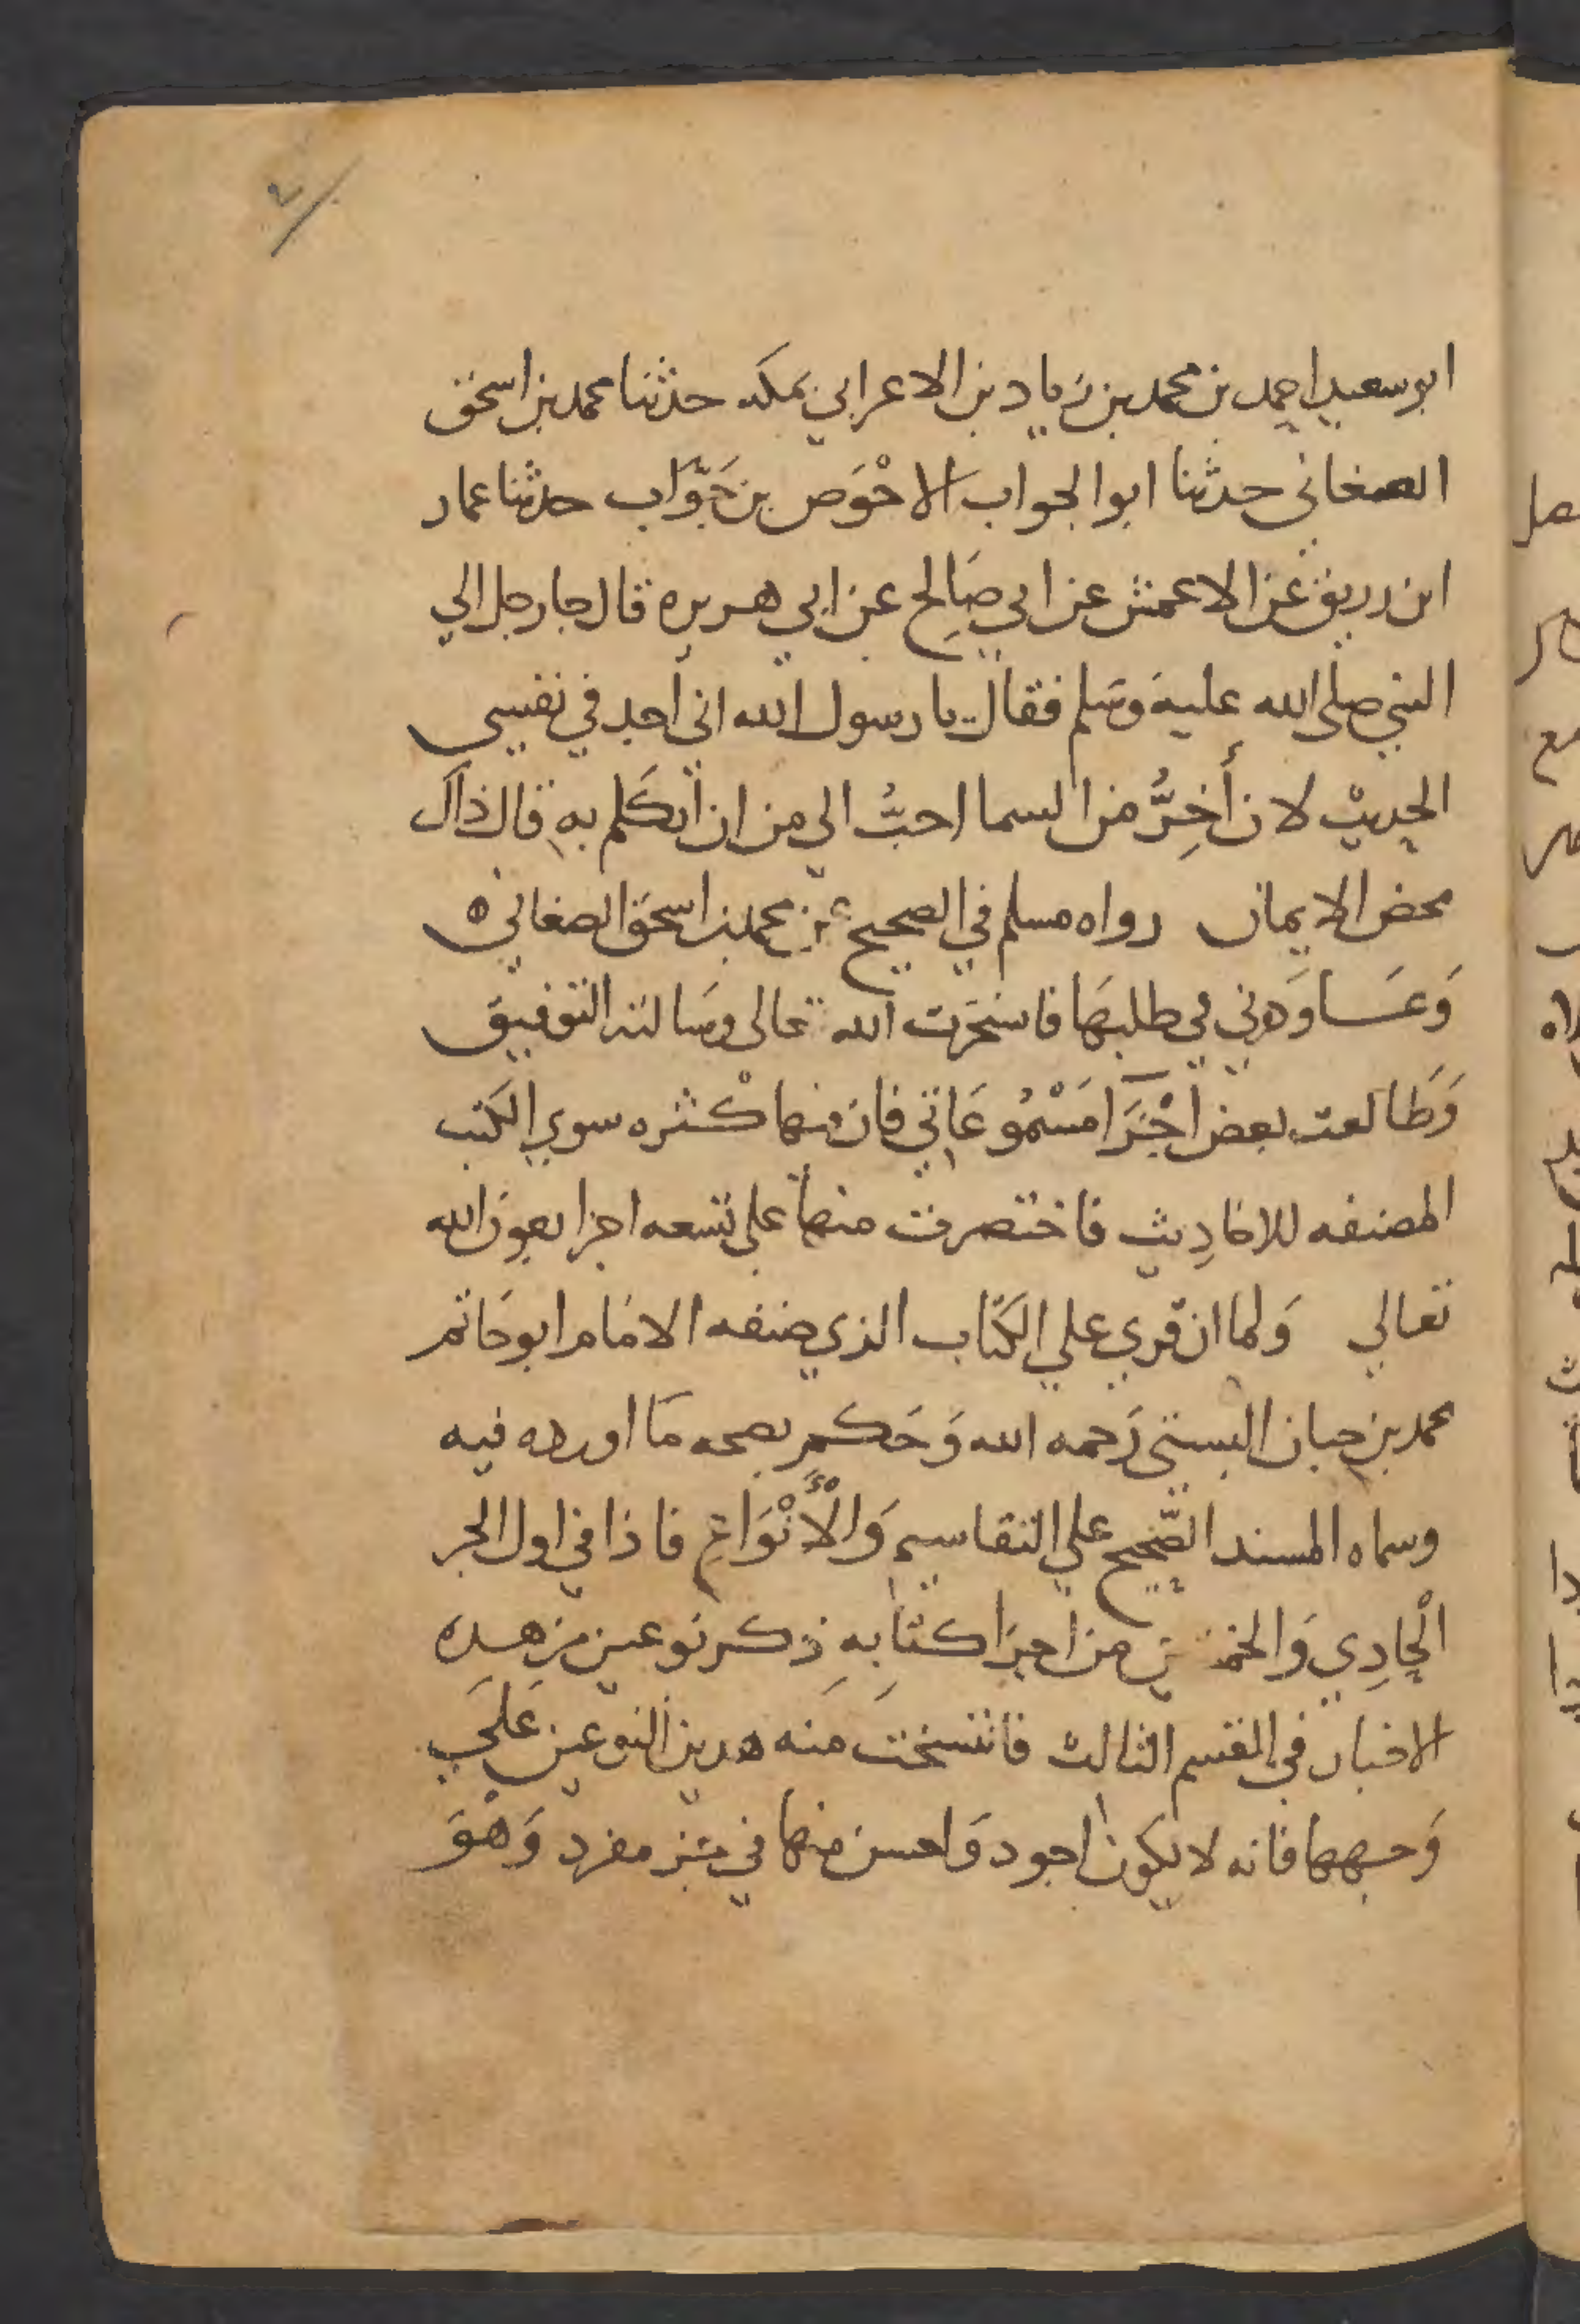 ابو سعيد احمد بن محمد بن زياد بن الاعرابي بمكه حدثنا محمد بن اسحق
الصغاني حدثنا ابو الجواب الاحْوَص بن جَوَّاب حدثنا عمار
ابن رريق عن الاعمش عن ابي صَالِح عن ابي هريره قال جا رجل الي
النبي صلى الله عليه وسَلم فقال يا رسول الله اني أجد في نفسي
الحديث لان أَخِرُّ من السما احبُّ الي من ان أتكَلم بهِ قال ذاك
محض الايمان رواه مسلم في الصحيح عن محمد بن اسحق الصغاني ه
وَعَاوَدني في طلبهَا فاستخرت الله تعالى وسَالته التوفيق
وَطَالعت بعض اجْزَا مَسْمُوعَاتي فان منها كْثره سوي الكتب
المصنفه للاحَادِيث فاختصرت منها على تسعه اجزا بعون الله
تعالي وَلما ان قري علي الكتَاب الذي صنفه الامَام ابو حَاتم
محمد بن حبان البستي رَحمه الله وَحَكم بصحه مَا اورده فيه
وسماه المسند الصَّحيح علي التقاسيم وَالْأَنْوَاعِ فاذا في اول الجز
الْحَادِي وَالخمسين من اجزا كتَابهِ ذكر نوعين من هذه
الاخبار في القسم الثالث فانتسخت مَنه هذين النوعين عَلَي
وَجههما فانه لا يكون اجود وَاحسن منها في مفرد وَهْوَ